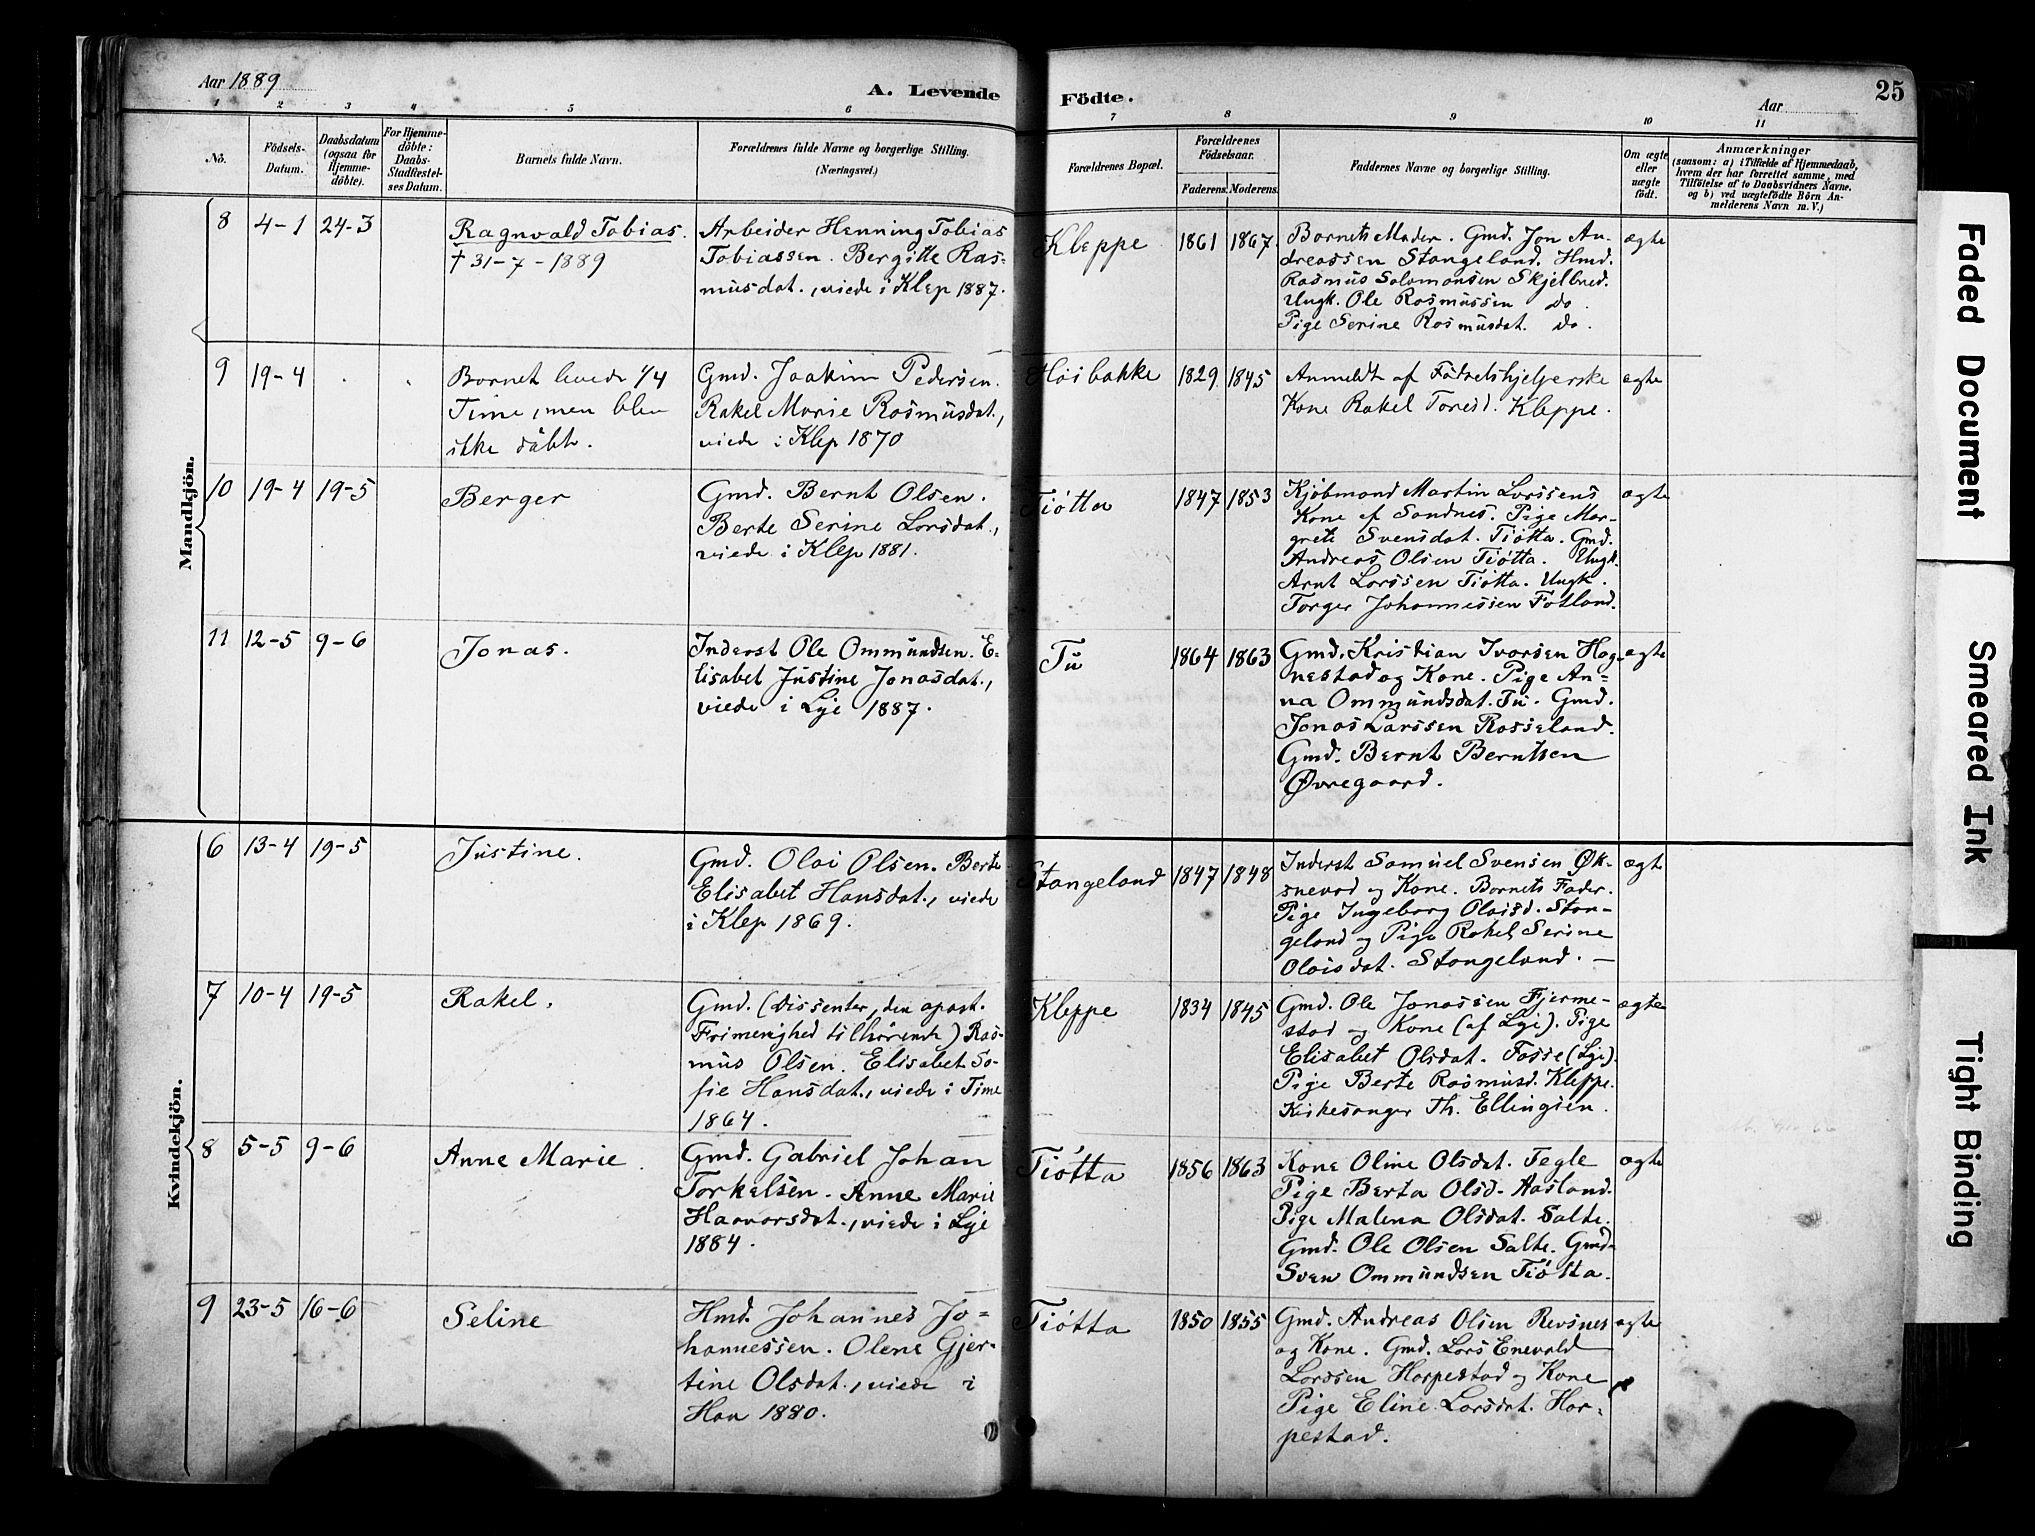 Aar 1889
A. Levende
Födte.
Aar
25
1 2 3 4 5 6 7 8 9 10 11
No.
Födsels-
Datum.
Daabsdatum
(ogsaa for
Hjemme-
döbte).
For Hjemme-
döbte:
Daabs-
Stadfæstel-
ses Datum.
Barnets fulde Navn.
Forældrenes fulde Navne og borgerlige Stilling.
(Næringsvei.)
Forældrenes Bopæl.
Forældrenes
Födselsaar.
Faderens. Moderens.
Faddernes Navne og borgerlige Stilling.
Om ægte
eller
uægte
födt.
Anmærkninger
(saasom: a) i Tilfælde af Hjemmedaab,
hvem der har forrettet samme, med
Tilföielse af to Daabsvidners Navne,
og b) ved uægtefödte Börn An-
melderens Navn m. V.)
Mandkjön.
8 4-1 24-3
Ragnvald Tobias.
† 31-7-1889
Arbeider Henning Tobias
Tobiassen. Bergitte Ras-
musdat., viede i Klep 1887.
Kleppe
1861 1867
Barnets Moder. Gmd. Jon An-
dreassen Stangeland. Hmd.
Rasmus Salomonsen Skjelbred.
Ungk. Ole Rasmussen do.
Pige Serine Rasmusdat. do.
ægte
9 19-4
Barnet levede 1/4
Time, men blev
ikke döbt.
Gmd. Joakim Pedersen.
Rakel Marie Rasmusdat.,
viede i Klep 1870
Höibakke
1829 1845
Anmeldt af Födselshjelperske
Kone Rakel Toresd. Kleppe.
ægte
10 19-4 19-5
Berger
Gmd. Bernt Olsen.
Berte Serine Larsdat.,
viede i Klep 1881.
Tiötta
1847 1853
Kjöbmand Martin Larssens
Kone af Sandnes. Pige Mar-
grete Svensdat. Tiötta. Gmd.
Andreas Olsen Tiötta. Ungk.
Arnt Larssen Tiötta. Ungk.
Torger Johannessen Fotland.
ægte
11 12-5 9-6
Jonas.
Inderst Ole Ommundsen. E-
lisabet Justine Jonasdat.,
viede i Lye 1887.
Tu
1864 1863
Gmd. Kristian Ivarsen Hog-
nestad og Kone. Pige An-
na Ommundsdat. Tu. Gmd.
Jonas Larssen Rosseland.
Gmd. Bernt Berntsen
Øvregaard.
ægte
Kvindekjön.
6 13-4 19-5
Justine.
Gmd. Olai Olsen. Berte
Elisabet Hansdat., viede
i Klep 1869.
Stangeland
1847 1848
Inderst Samuel Svensen Øk-
snevad og Kone. Barnets Fader.
Pige Ingeborg Olaisd. Stan-
geland og Pige Rakel Serine
Olaisdat. Stangeland. —
ægte
7 10-4 19-5
Rakel.
Gmd. (Dissenter, den apost.
Frimenighed tilhörende) Ras-
mus Olsen. Elisabet So-
fie Hansdat., viede i Time
1864.
Kleppe
1834 1845
Gmd. Ole Jonassen Fjerme-
stad og Kone (af Lye). Pige
Elisabet Olsdat. Fosse (Lye).
Pige Berte Rasmusd. Kleppe.
Kirkesanger Th. Ellingsen.
ægte
8 5-5 9-6
Anne Marie.
Gmd. Gabriel Johan
Torkelsen. Anne Marie
Haavarsdat., viede i Lye
1884.
Tiötta
1856 1863
Kone Oline Olsdat. Tegle
Pige Berta Olsd. Aasland.
Pige Malena Olsdat. Salte.
Gmd. Ole Olsen Salte. Gmd.
Sven Ommundsen Tiötta.
ægte
9 23-5 16-6
Seline
Hmd. Johannes Jo-
hannessen. Olene Gjer-
tine Olsdat., viede i
Haa 1880.
Tiötta
1850 1855
Gmd. Andreas Olsen Revsnes
og Kone. Gmd. Lars Enevald
Larssen Harpestad og Kone
Pige Eline Larsdat. Har-
pestad.
ægte
Faded Document
Smeared Ink
Tight Binding